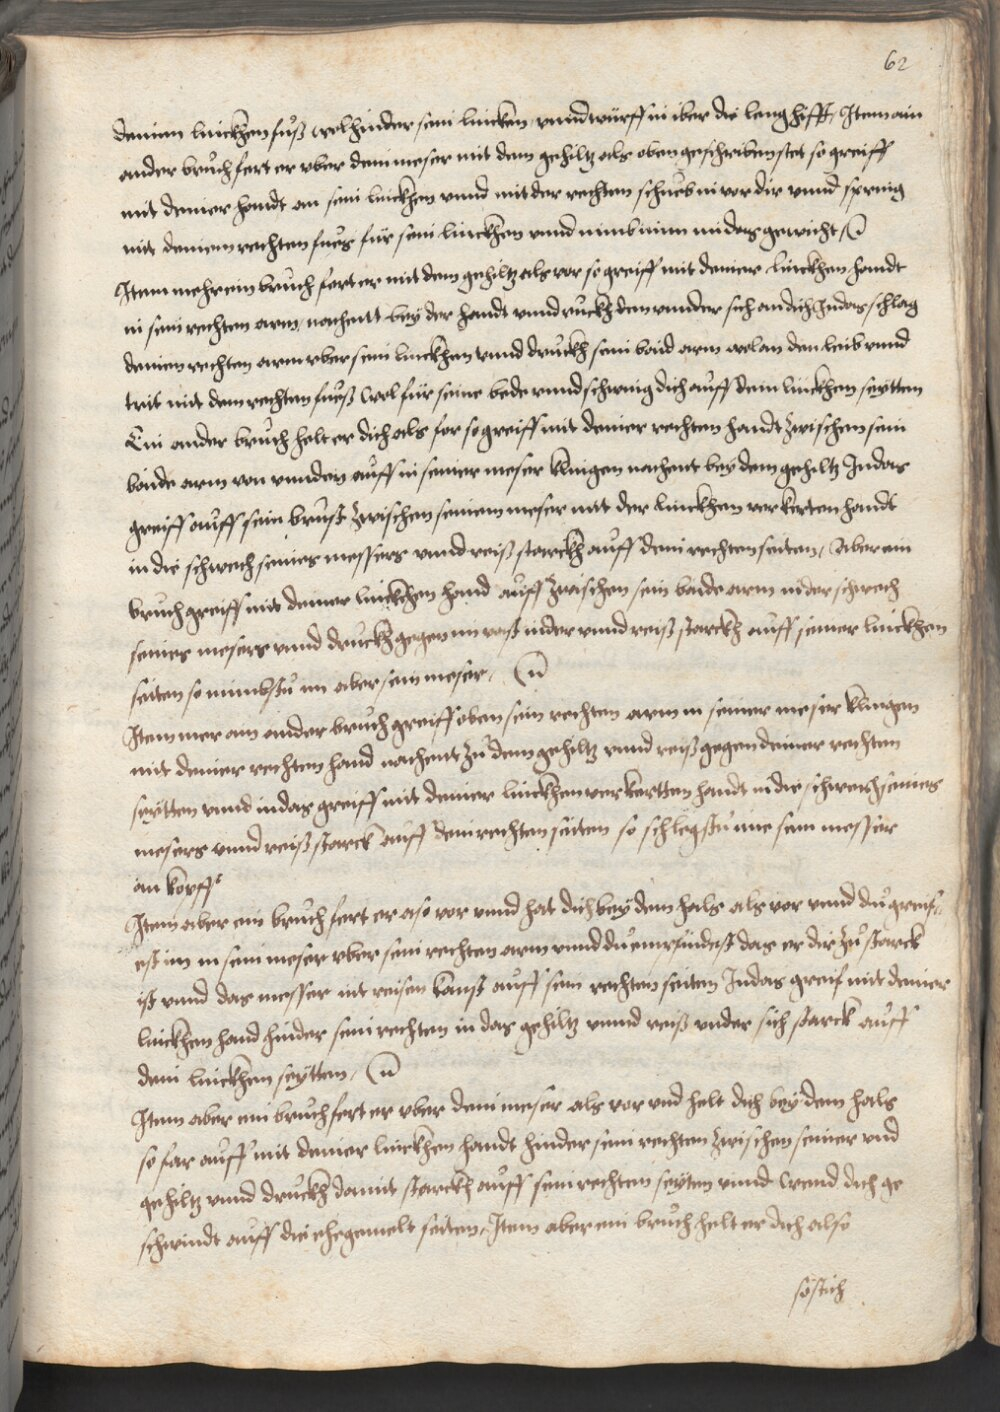 62
deinem linckhen fuß wol hinder sein lincken vnnd würff in iber die leng hifft, Item ain
ander bruch fert er vber dein meser mit dem gehiltz als oben geschriben stet so greiff
mit deiner handt an sein linckhen vnnd mit der rechten schueb in vor dir vnnd spring
mit deinem rechten fues für sein linckhen vnnd nimb inim mi das gewicht
Item mehr ein bruch fert er mit dem gehiltz als vor so greiff mit deiner linckhen handt
in sein rechten arm, nachentt bey der handt vnnd ruckh den vnnder sich an dich Indas schlag
deinen rechten arm vber sein linckhen vnnd druckh sein baid arm wol an den leib vnnd
trit mit dem rechten fueß wol für seine bede vnnd schwing dich auff dein linckhen seytten
Ein ander bruch helt er dich als for so greiff mit deiner rechten handt zwischen sein
baide arm von vnnden auff in seiner meser klingen nachent bey dem gehiltz Indas
greiff auff sein brust zwischen seinem meser mit der linckhen verkerten handt
in die schwech seines messers vnnd reiß starckh auff dein rechten seiten, Aber ein
bruch greiff mit deiner linckhen hand auff zwischen sein baide arm in der schwech
seines mesers vnnd druckh gegen im vast nider vnnd reiß starckh auff seiner linckhen
seiten so nimbstu im aber sein meser,
Item mer ain ander bruch greiff oben sein rechten arm in seiner meser klingen
mit deiner rechten hand nachent zu dem gehiltz vnnd reiß gegen deiner rechten
seytten vnnd indas greiff mit deiner linckhen verkertten handt in die schwech seines
mesers vnnd reiß starck auff dein rechten seiten so schlegstu ime sein messer
an kopff
Item aber ein bruch fert er aso vor vnnd hat dich bey dem hals als vor vnnd du greif-
est im in sein meser vber sein rechten arm vnnd du empfindest das er dir zu starck
ist vnnd das messer nit reisen kanst auff sein rechten seiten Indas greif mit deiner
linckhen hand hinder sein rechten in das gehiltz vnnd reiß vnder sich starck auff
dein linckhen seytten,
Item aber ein bruch fert er vber dein meser als vor vnd helt dich bey dem hals
so far auff mit deiner linckhen handt hinder sein rechten zwischen seiner vnd
gehiltz vnnd druckh damit starckh auff sein rechten seyten vnnd wend dich ge
schwindt auff die ehegemelt seiten, Item aber ein bruch helt er dich also